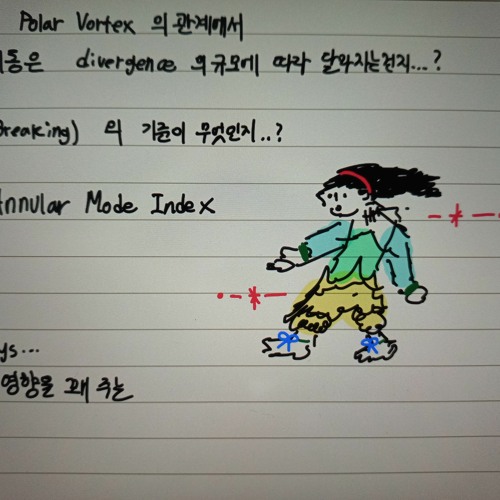 Polar Vortex 의 관계에서
동은 divergence 의 규모에 따라 달라지는건지...?
Breaking) 의 기준이 무엇인지..?
Annular Mode Index
ys...
영향을 꽤 주는